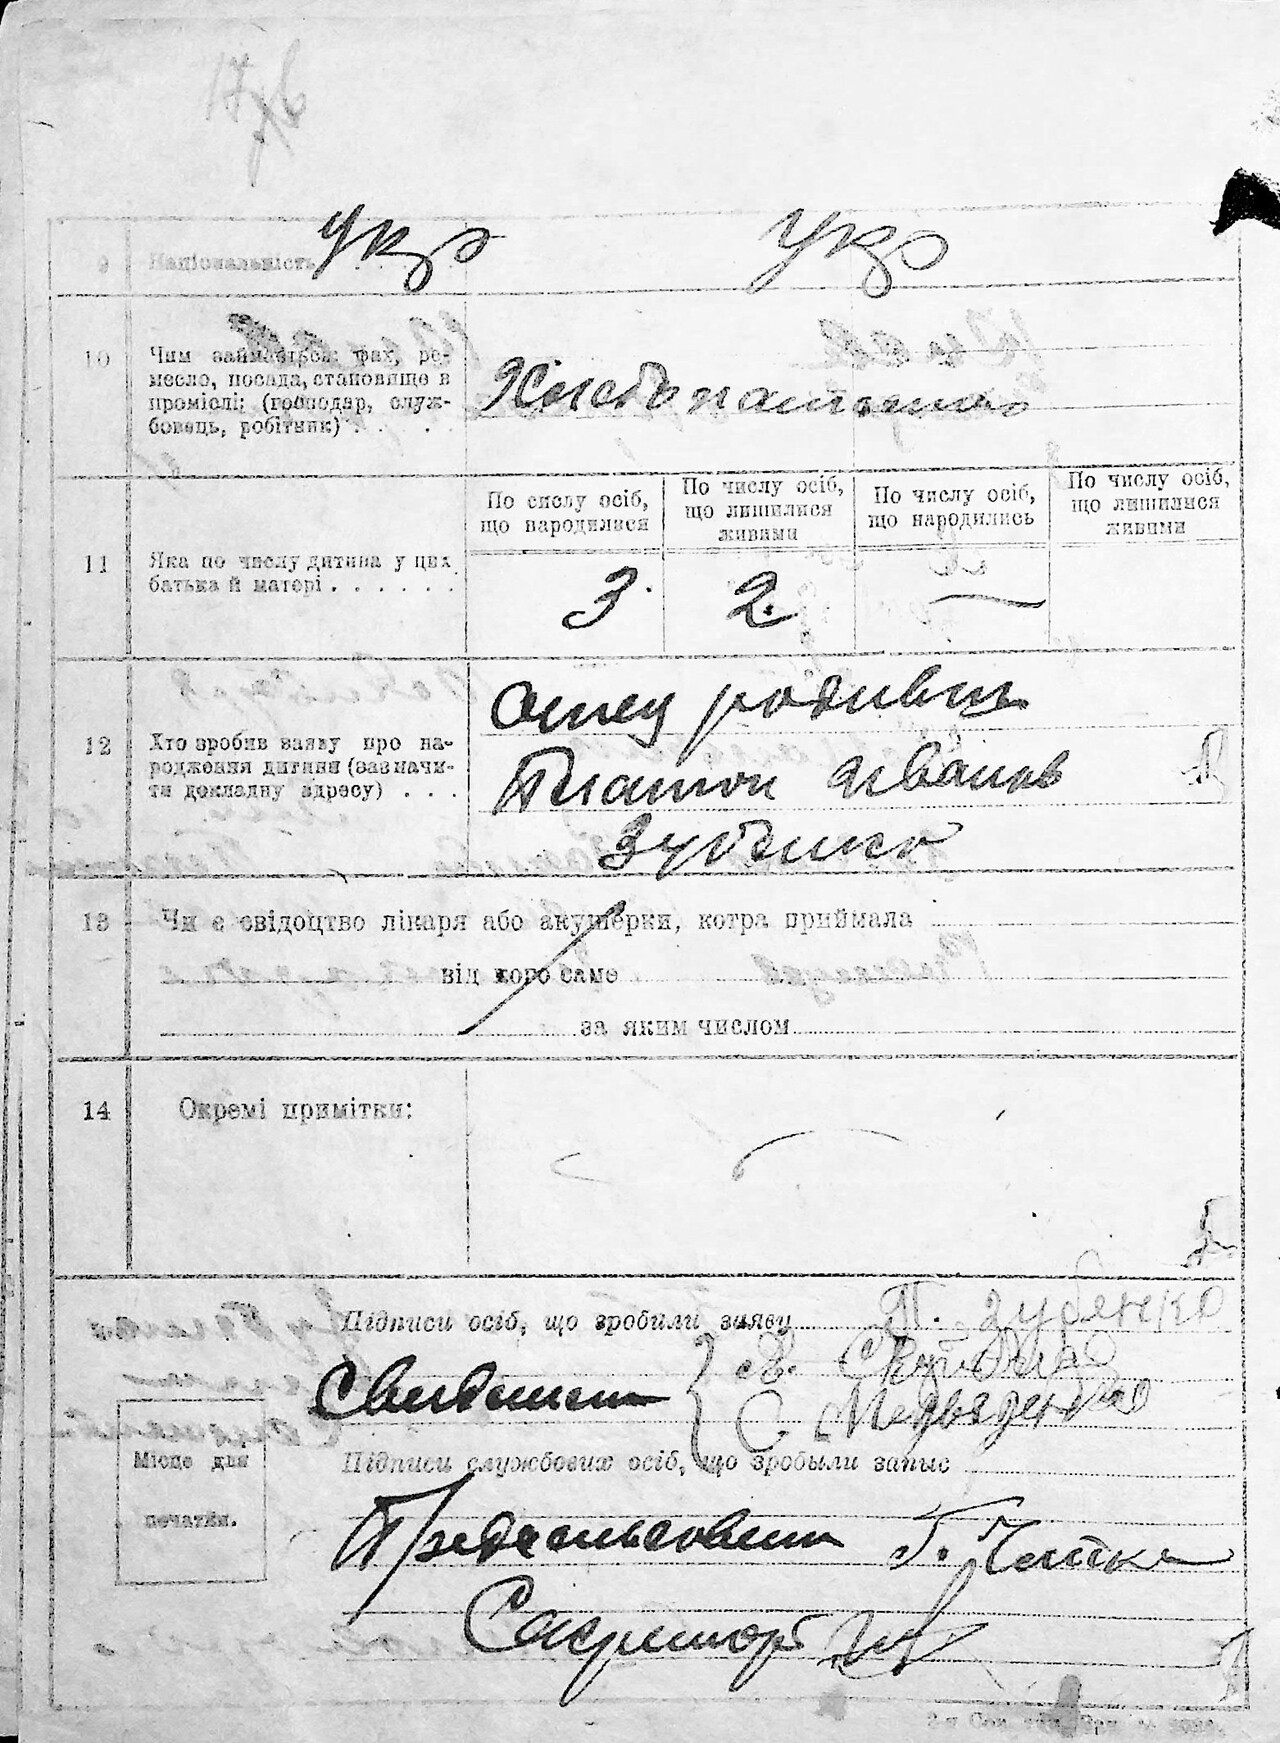 Укр Укр
9 Національність
10 Чим займається: фах, ре-
месло, посада, становище в
проміслі; (господар, служ-
бовець, робітник)
Хлебопашество
По числу осіб,
що народилися
По числу осіб,
що лишилися
живими
По числу осіб,
що народились
По числу осіб,
що лишилися
живими
11 Яка по числу дитина у цих
батька й матері . . . . . .
3. 2. —
12 Хто зробив заяву про на-
родження дитини (зазначи-
ти докладну адресу) . . .
Отец
Платон Иванов
Зубенко
13 Чи є свідоцтво лікаря або акушерки, котра приймала
від кого саме
за яким числом
14 Окремі примітки:
Підписи осіб, що зробили заяву П. Зубенко
Свидетели
С. Медьведенко
Підписи службових осіб, що зробыли запыс
Місце для
печатки.
Предсельсовета Г.
Секретарь